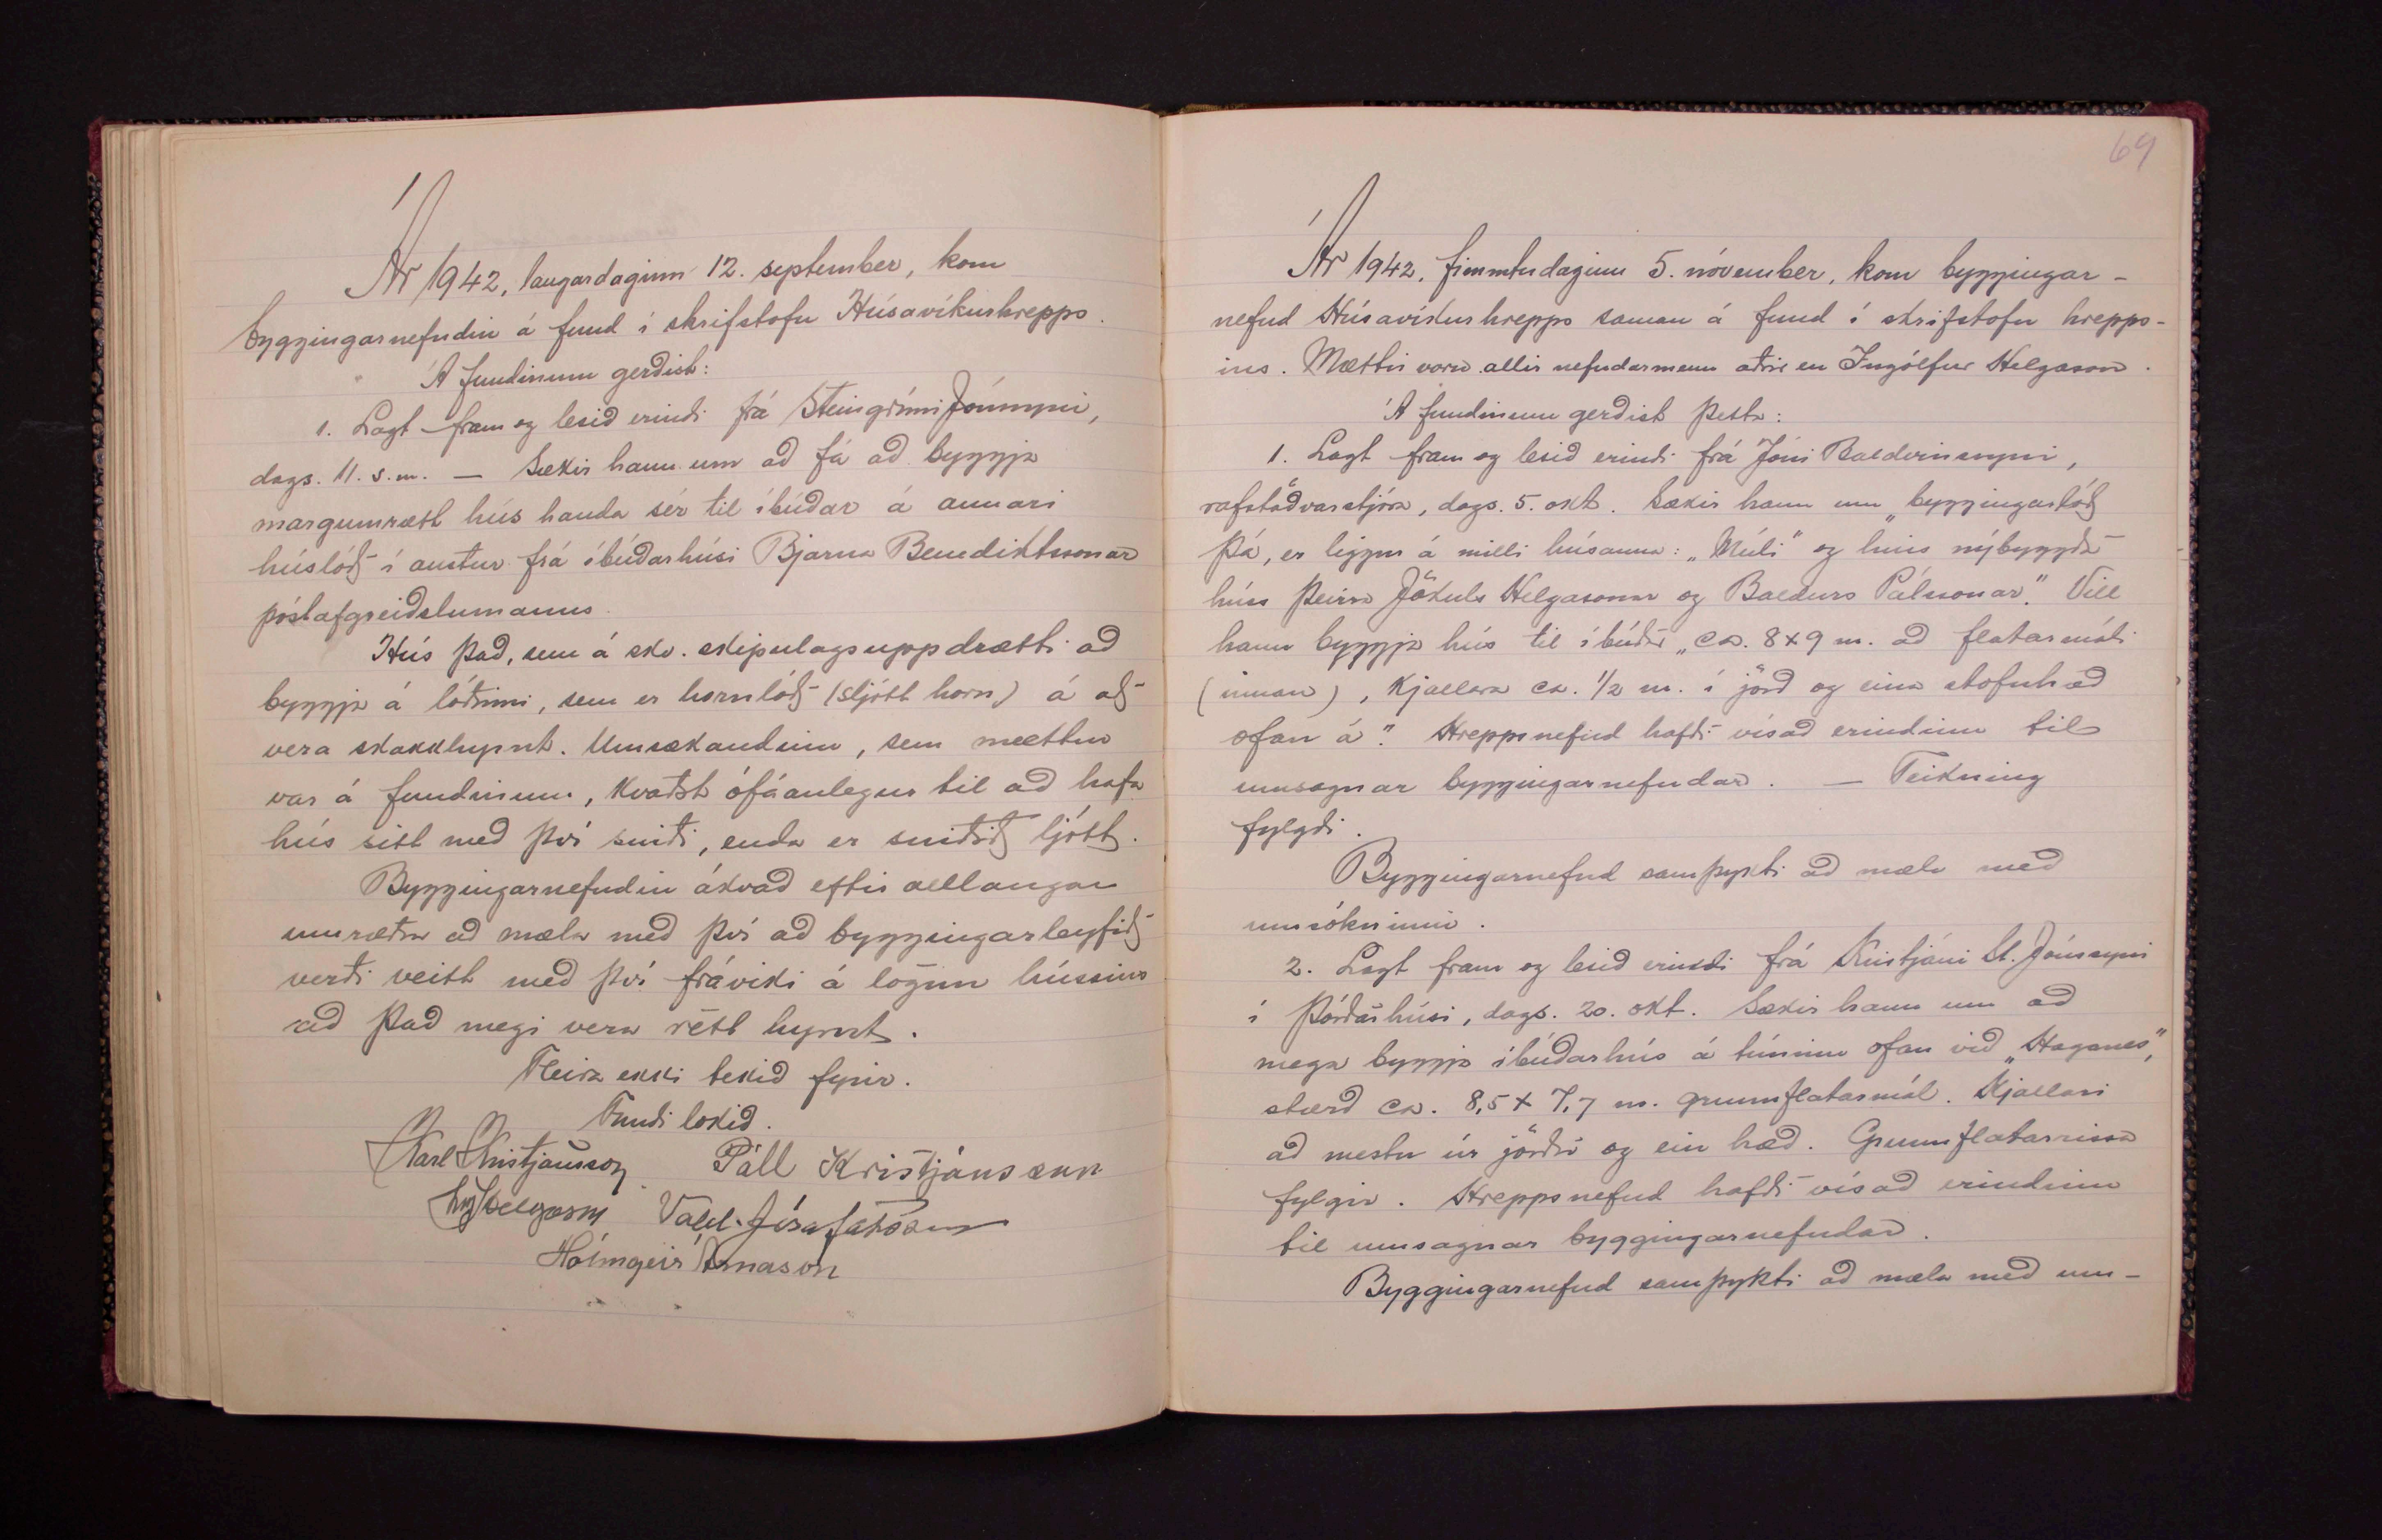 Ár 1942, laugardaginn 12. september, kom
byggingarnefndin á fund í skrifstofu Húsavíkurhrepps.
Á fundinum gerðist:
1. Lagt fram og lesið erindi frá Steingrími Jónssyni,
dags. 11. s.m. — Sækir hann um að fá að byggja
margumrætt hús handa sér til íbúðar á annari
húslóð í austur frá íbúðarhúsi Bjarna Benediktssonar
póstafgreiðslumanns.
Hús það, sem á skv. skipulagsuppdrætti að
byggja á lóðinni, sem er hornlóð (sljótt horn) á að
vera skakkhyrnt. Umsækandinn, sem mættur
var á fundinum, kvaðst ófáanlegur til að hafa
hús sitt með því sniði, enda er sniðið ljótt.
Byggingarnefndin ákvað eftir alllangar
umræður að mæla með því að byggingarleyfið
verði veitt með því fráviki á lögun hússins
að það megi vera rétt hyrnt.
Fleira ekki tekið fyrir.
Fundi lokið.
Karl Kristjánsson Páll Kristjánsson
Ing Helgason Vald. Jósafatsson
Hólmgeir Árnason
69
Ár 1942, fimmtudaginn 5. nóvember, kom byggingar-
nefnd Húsavíkurhrepps saman á fund í skrifstofu hrepps-
ins. Mættir voru allir nefndarmenn aðrir en Ingólfur Helgason.
Á fundinum gerðist þetta:
1. Lagt fram og lesið erindi frá Jóni Baldvinssyni,
rafstöðvarstjóra, dags. 5. okt. Sækir hann um „byggingarlóð
þá, er liggur á milli húsanna: „Múli" og hins nýbyggða
húss þeirra Jökuls Helgasonar og Baldurs Pálssonar." Vill
hann byggja hús til íbúðar „ca. 8x9 m. að flatarmáli
(innan), kjallara ca. 1/2 m. í jörð og eina stofuhæð
ofan á". Hreppsnefnd hafði vísað erindinu til
umsagnar byggingarnefndar. — Teikning
fylgdi.
Byggingarnefnd samþykti að mæla með
umsókninni.
2. Lagt fram og lesið erindi frá Kristjáni St. Jónssyni
í Þórðarhúsi, dags. 20. okt. Sækir hann um að
mega byggja íbúðarhús á túninu ofan við „Haganes",
stærð ca. 8,5 x 7,7 m. grunnflatarmál. Kjallari
að mestu úr jörðu og ein hæð. Grunnflatarrissa
fylgir. Hreppsnefnd hafði vísað erindinu
til umsagnar byggingarnefndar.
Byggingarnefnd samþykti að mæla með um-